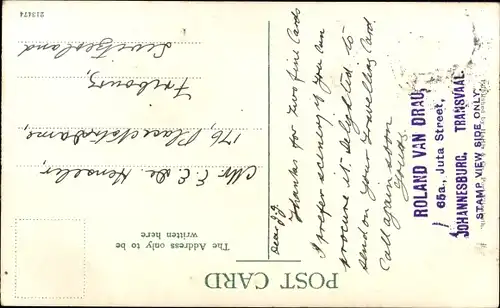 POST CARD
The Address only to be
written here
Dear J.J.
Thanks for two fine Cards
I prefer scenery if you can
procure it. Delighted to
send on your Travelling Card
Call again soon
Yours
ROLAND VAN DRAU,
65a., Juta Street,
JOHANNESBURG, TRANSVAAL
STAMP VIEW SIDE ONLY.
Mr. E. E. de Henseler,
176, Place Notre Dame,
Fribourg,
Switzerland
213474